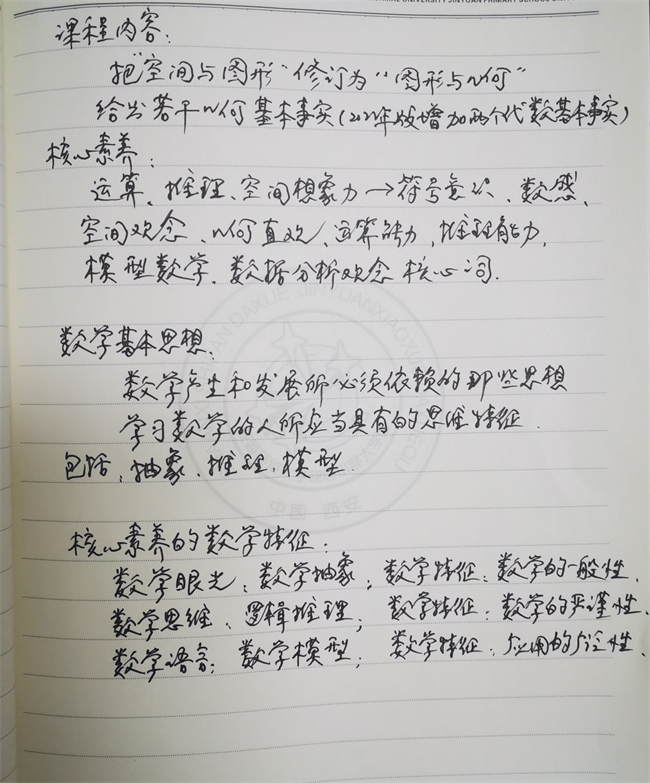 课程内容:
把"空间与图形"修订为"图形与几何"
给出若干几何基本事实(2022年版增加两个代数基本事实)
核心素养:
运算、推理、空间想象力→符号意识、数感、
空间观念、几何直观、运算能力、推理能力、
模型数学、数据分析观念 核心词.
数学基本思想:
数学产生和发展所必须依赖的那些思想
学习数学的人所应当具有的思维特征.
包括:抽象、推理、模型.
核心素养的数学特征:
数学眼光、数学抽象;数学特征:数学的一般性.
数学思维、逻辑推理;数学特征:数学的严谨性.
数学语言:数学模型;数学特征:应用的广泛性.
中国 西安